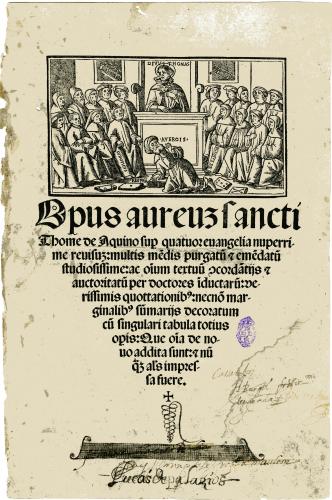 DIVVS THOMAS
AVEROIS
Opus aureuz sancti
Thome de Aquino sup quatuor euangelia nuperri
me reuisuz: multis mēdis purgatū & emēdatū
studiosissime: ac oīum textuū ꝯcordātijs &
auctoritatū per doctores īductarū: ve
rissimis quottationibꝰ: necnō mar
ginalibꝰ sūmarijs decoratum
cū singulari tabula totius
opīs: Que oīa de no
uo addita sunt: & nū
ꝙ̄ aľs impres
sa fuere.
Lucas de palacios